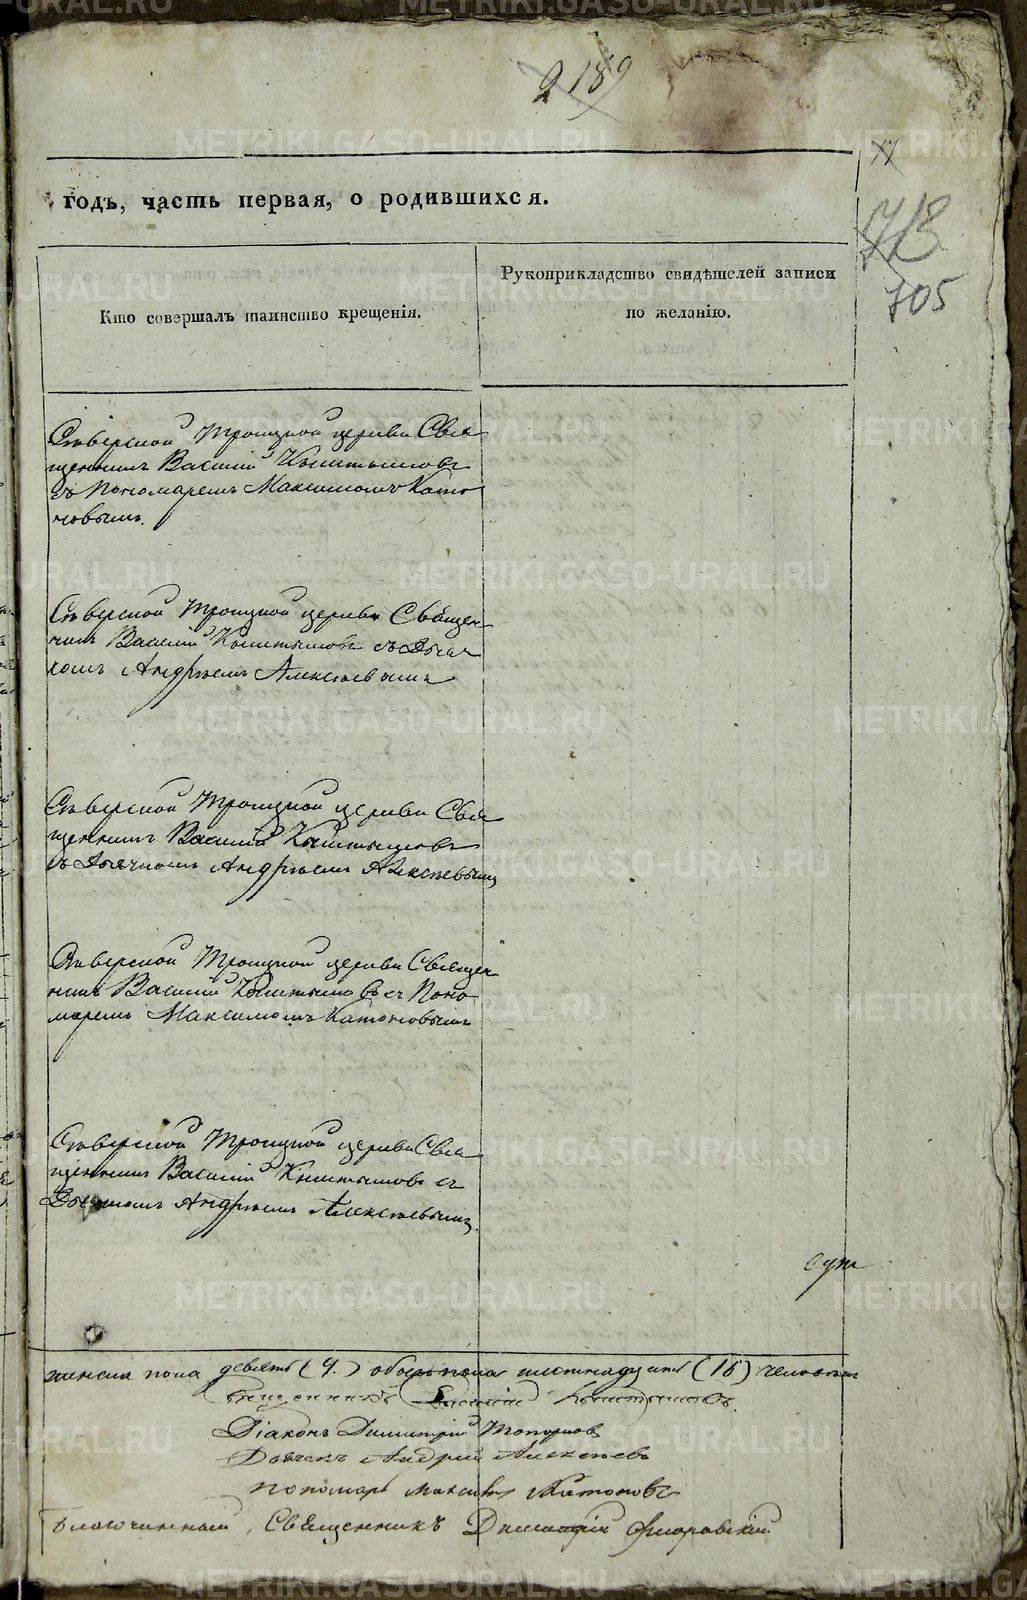 2189
годъ, часть первая, о родившихся.
718
705
Кто совершалъ таинство крещенія.
Рукоприкладство свидѣтелей записи
по желанію.
Сѣверской Троицкой церкви Свя
щенникъ Василій Кыштымовъ
съ Пономаремъ Максимомъ Като
новымъ.
Сѣверской Троицкой церкви Священ-
никъ Василій Кыштымовъ съ Дьяч
комъ Андреемъ Алексѣевымъ
Сѣверской Троицкой церкви Свя
щенникъ Василій Кыштымовъ
съ Дьячкомъ Андреемъ Алексѣевымъ
Сѣверской Троицкой церкви Священ
никъ Василій Кыштымовъ съ Поно
маремъ Максимомъ Катоновымъ
Сѣверской Троицкой церкви Свя
щенникъ Василій Кыштымовъ съ
Дьячкомъ Андреемъ Алексѣевымъ.
женска пола девять (9.) обоего пола шестнадцать (16) человекъ
Священникъ Василій Кыштымовъ.
Діаконъ Димитрій Топорковъ
Дьячекъ Андрей Алексѣевъ
пономарь Максимъ Катоновъ
Благочинный, Священникъ Димитрій
METRIKI.GASO-URAL.RU